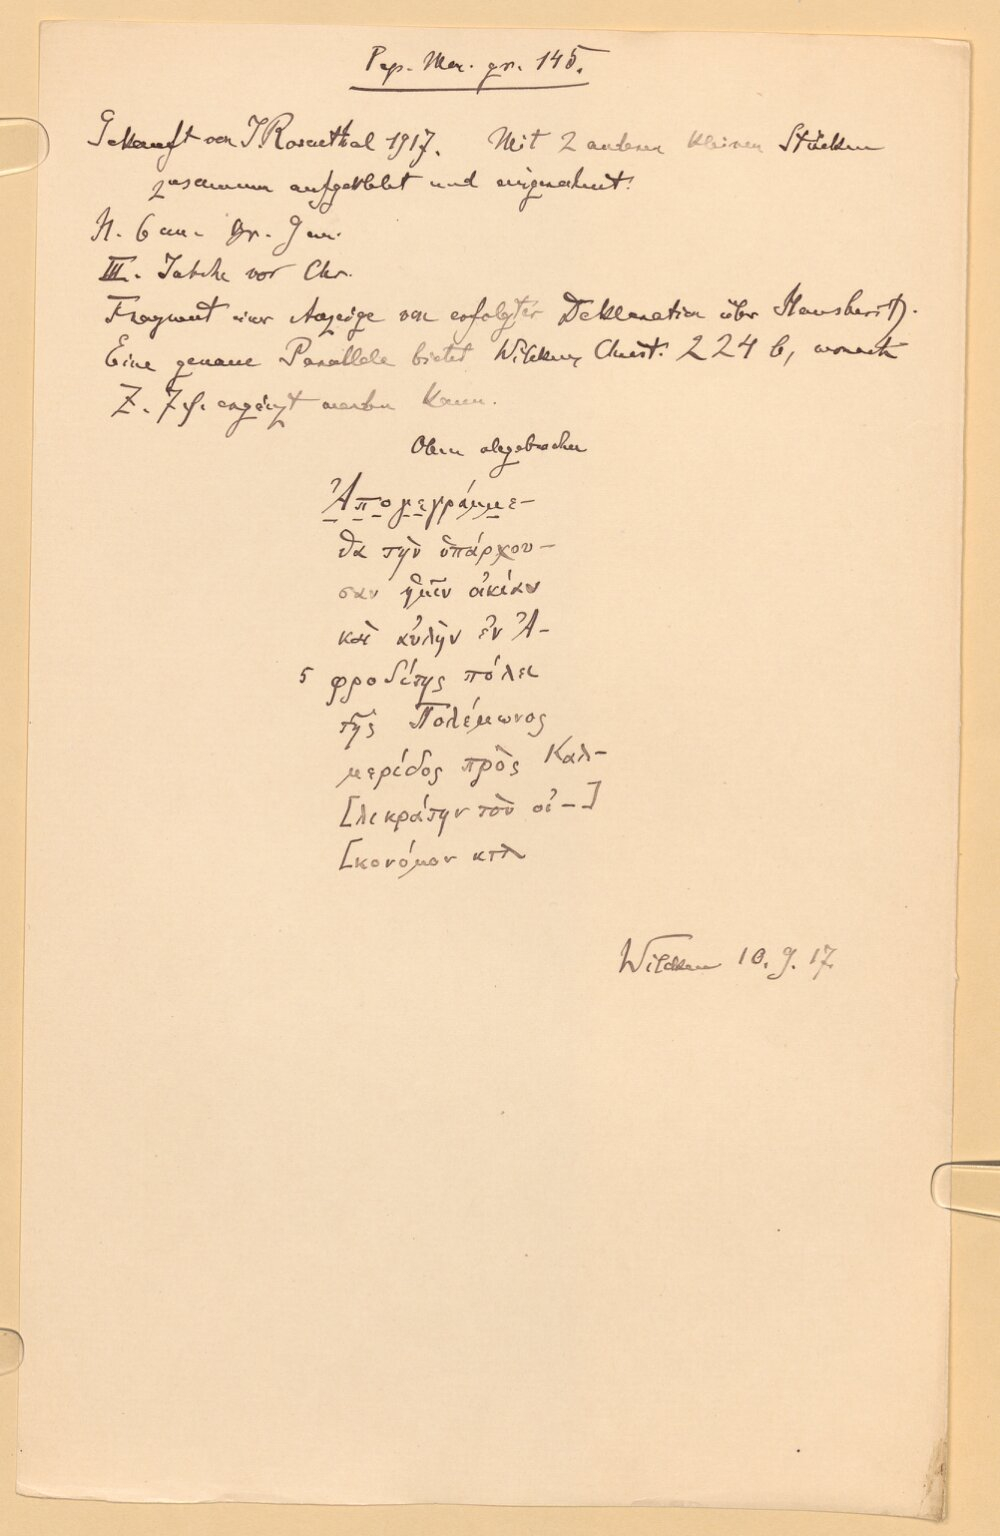 Pap. Mon. gr. 145.
Gekauft von J. Rosenthal 1917. Mit 2 anderen kleinen Stücken
zusammen aufgeklebt und eingerahmt.
H. 6 cm. Br. 9 cm.
III. Jahrh. vor Chr.
Fragment einer Anzeige von erfolgter Deklaration über Hausbesitz.
Eine genaue Parallele bietet Wilcken, Chrest. 224 b, wonach
Z. 7 f. ergänzt werden kann.
Oben abgebrochen
Ἀπογεγράμμε-
θα τὴν ὑπάρχου-
σαν ἡμῖν οἰκίαν
καὶ αὐλὴν ἐν Ἀ-
5 φροδίτης πόλει
τῆς Πολέμωνος
μερίδος πρὸς Καλ-
[λικράτην τὸν οἰ-]
[κονόμον κτλ
Wilcken 10. 9. 17.